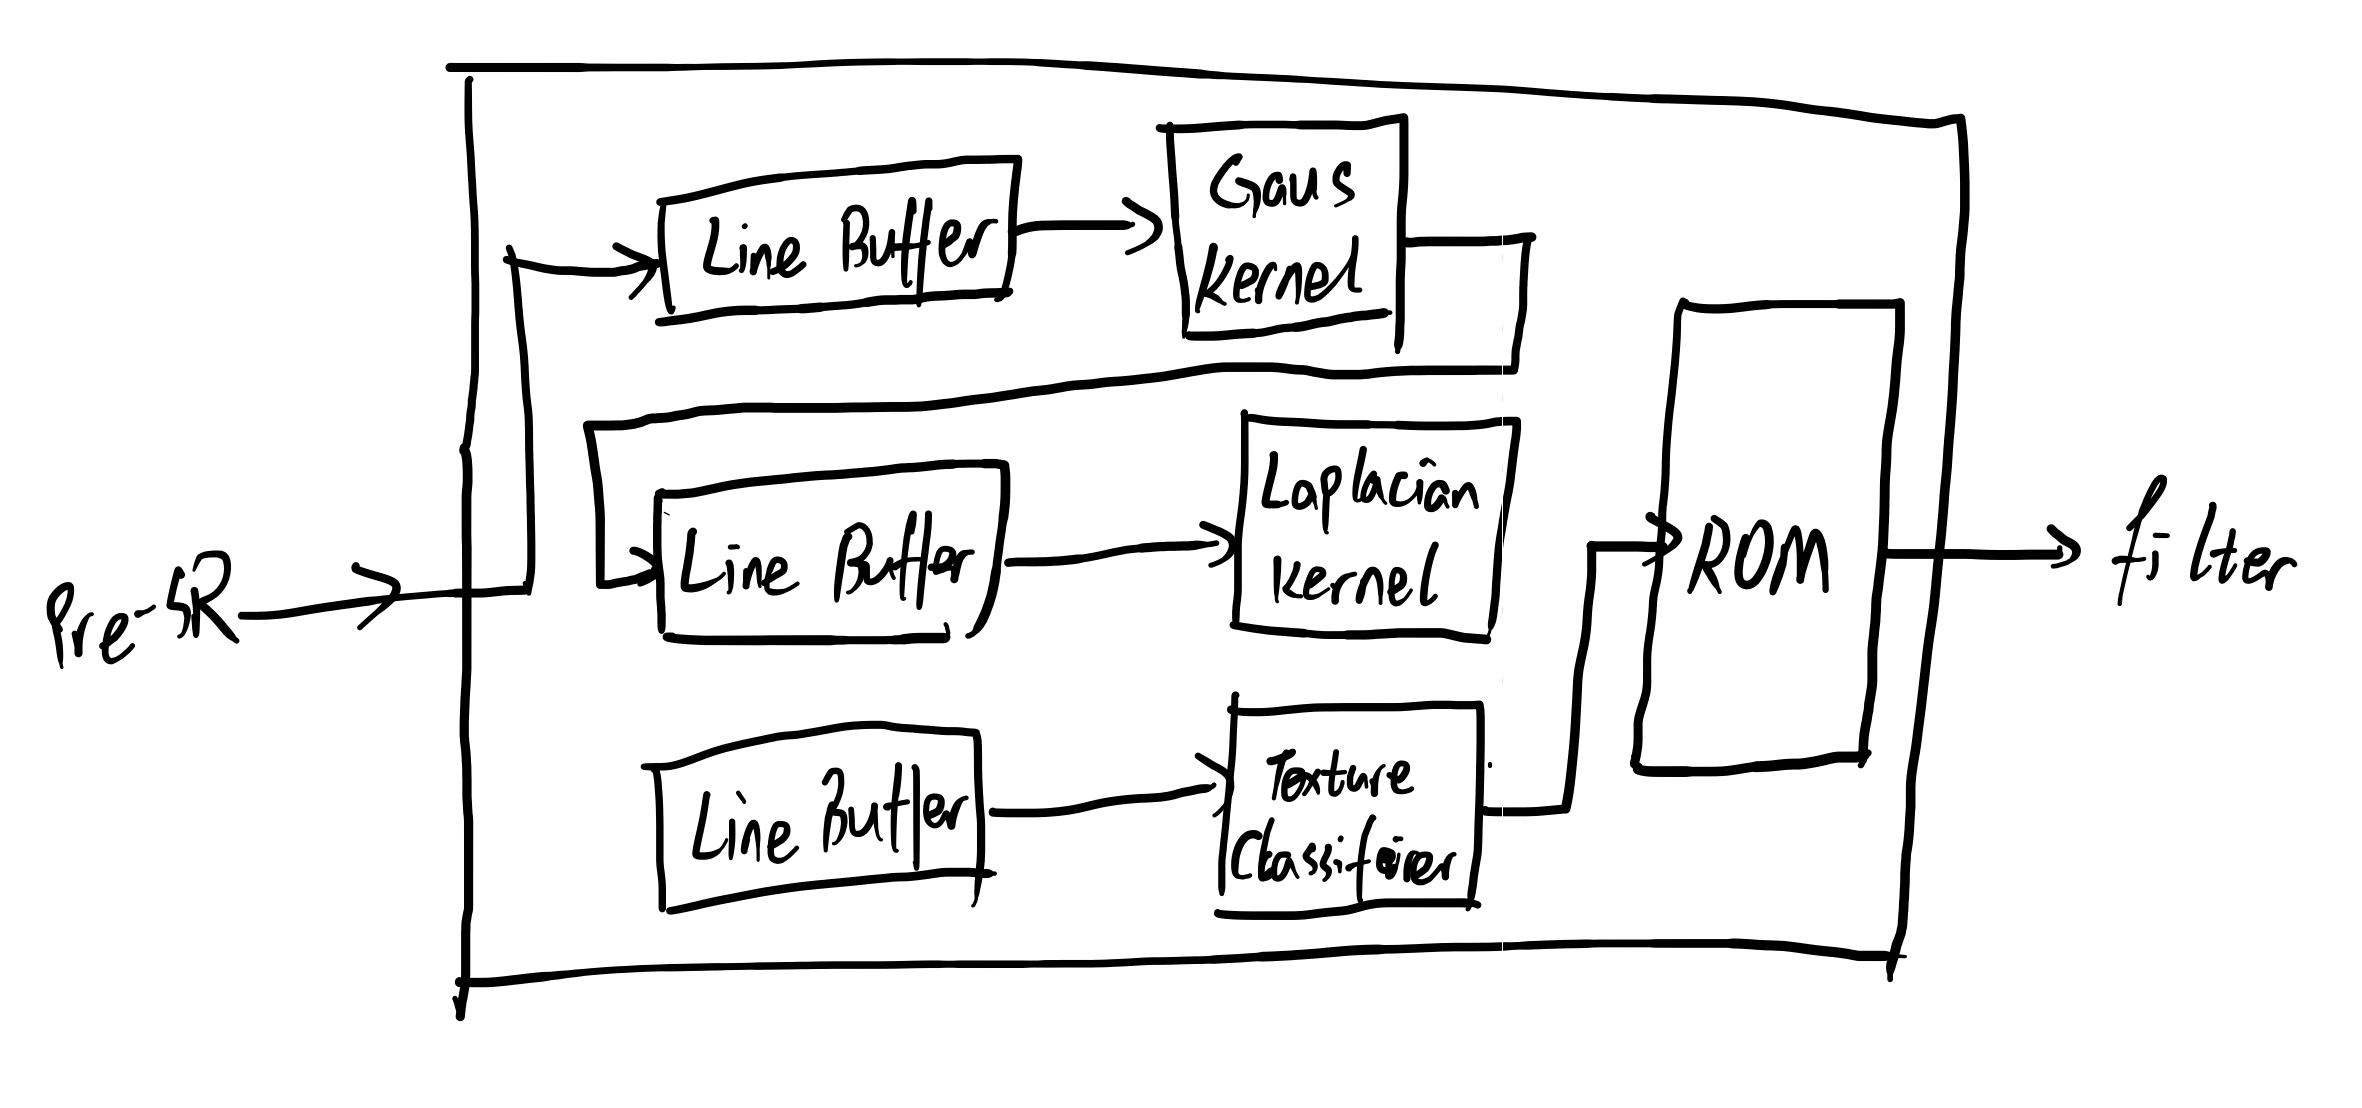 Pre-SR
Line Buffer
Gaus
Kernel
Line Buffer
Laplacian
Kernel
Line Buffer
Texture
Classifier
ROM
filter